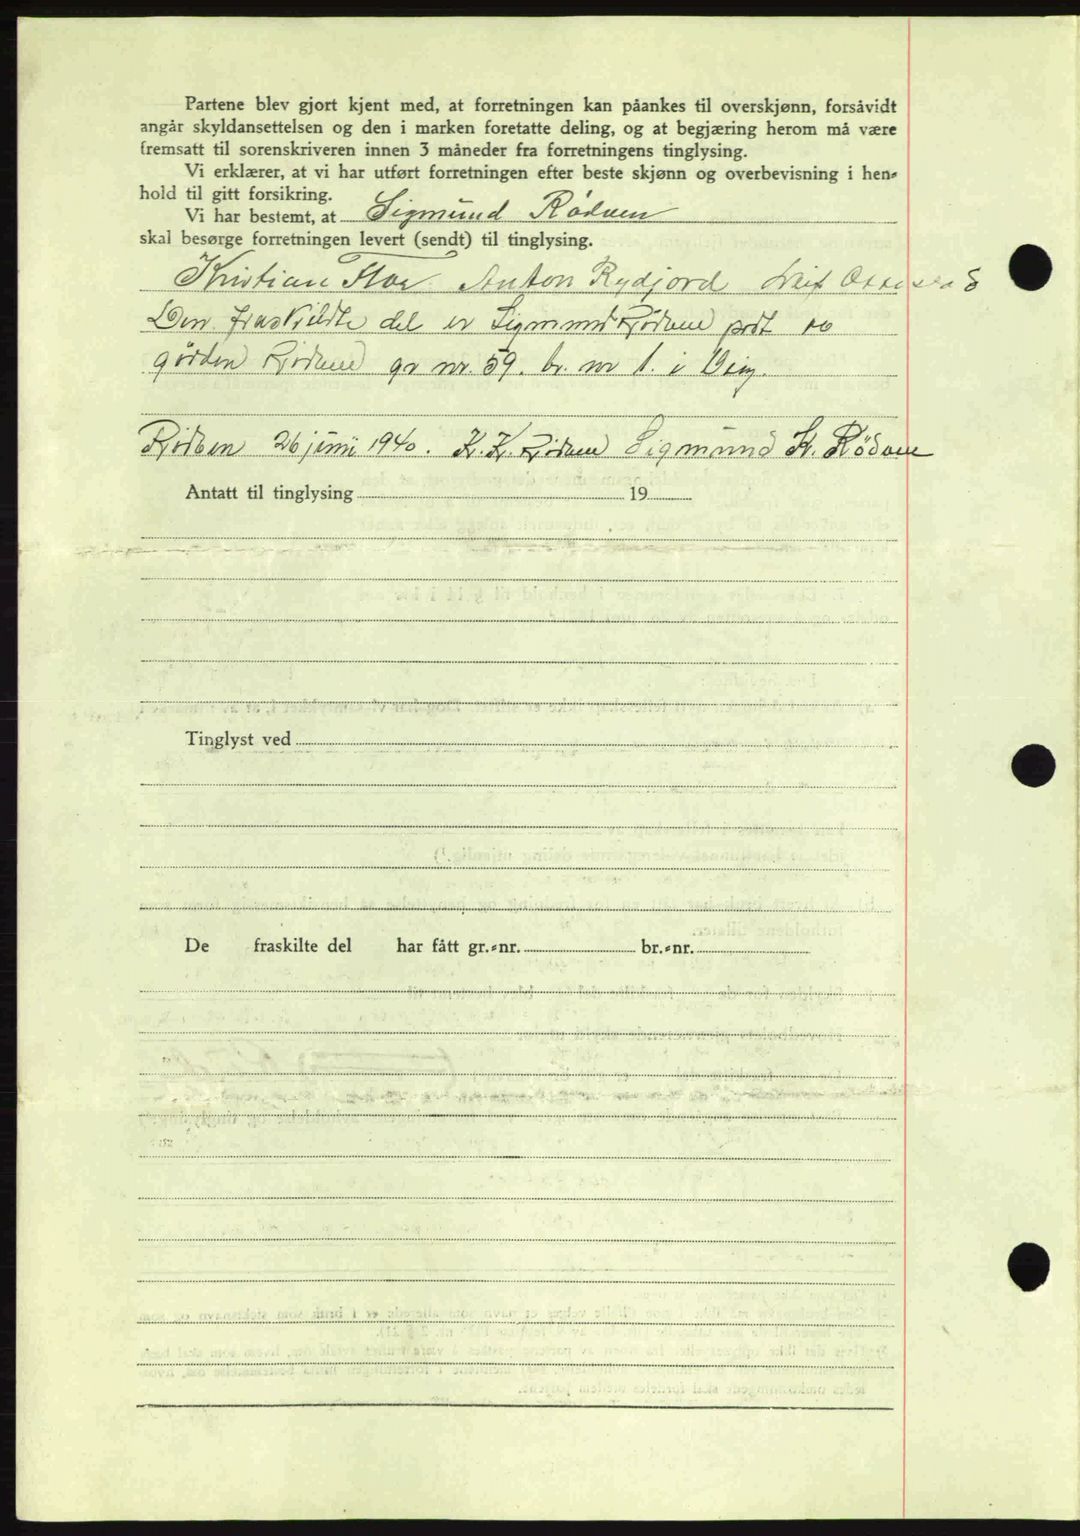 Partene blev gjort kjent med, at forretningen kan påankes til overskjønn, forsåvidt
angår skyldansettelsen og den i marken foretatte deling, og at begjæring herom må være
fremsatt til sorenskriveren innen 3 måneder fra forretningens tinglysing.
Vi erklærer, at vi har utført forretningen efter beste skjønn og overbevisning i hen-
hold til gitt forsikring.
Vi har bestemt, at Sigmund Rödven
skal besørge forretningen levert (sendt) til tinglysing.
Kristian Anton Rydjord Leif
Den fraskildte del er Sigmund Rödven
gården Rödven gr nr. 59. br. nr 1. i
Rödven 26 juni 1940. K. K. Rödven Sigmund K. Rödven
Antatt til tinglysing 19
Tinglyst ved
De fraskilte del har fått gr.-nr. br.-nr.